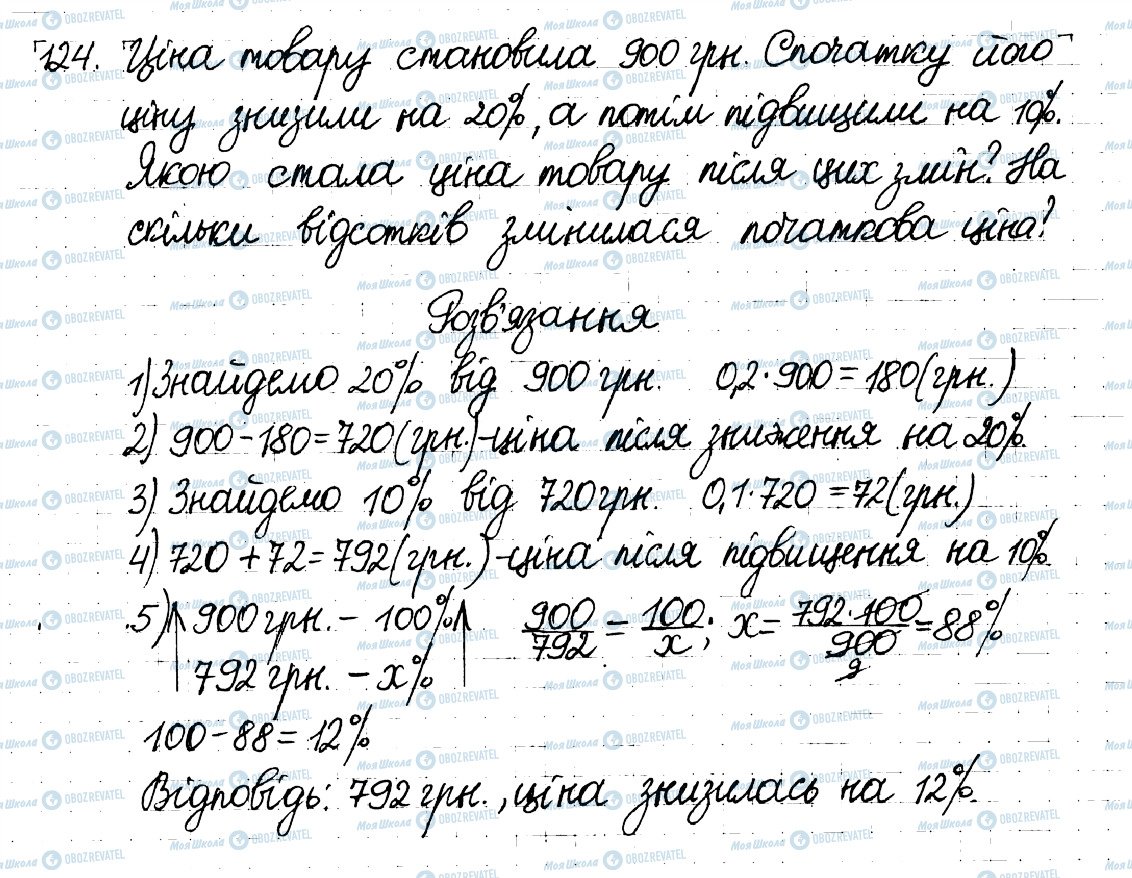 124. Ціна товару становила 900 грн. Спочатку його
ціну знизили на 20%, а потім підвищили на 10%.
Якою стала ціна товару після цих змін? На
скільки відсотків змінилася початкова ціна?
Розв'язання
1) Знайдемо 20% від 900 грн. 0,2·900=180(грн.)
2) 900-180=720(грн.)-ціна після зниження на 20%.
3) Знайдемо 10% від 720грн. 0,1·720=72(грн.)
4) 720+72=792(грн.)-ціна після підвищення на 10%.
5) 900 грн. - 100% 900/792 = 100/x; x = 792·100/900 = 88%
792 грн. - x% 9
100-88=12%
Відповідь: 792 грн., ціна знизилась на 12%.
МояШкола OBOZREVATEL